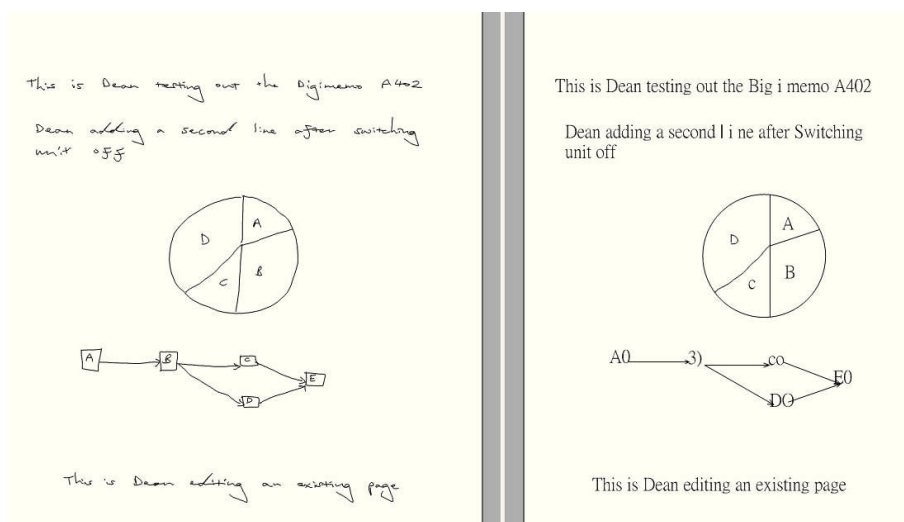 This is Dean testing out the Digimemo A402
Dean adding a second line after switching
unit off
A
D
B
C
A
B
C
E
D
This is Dean editing an existing page
This is Dean testing out the Big i memo A402
Dean adding a second l i ne after Switching
unit off
A
D
B
c
A0
3)
co
E0
DO
This is Dean editing an existing page